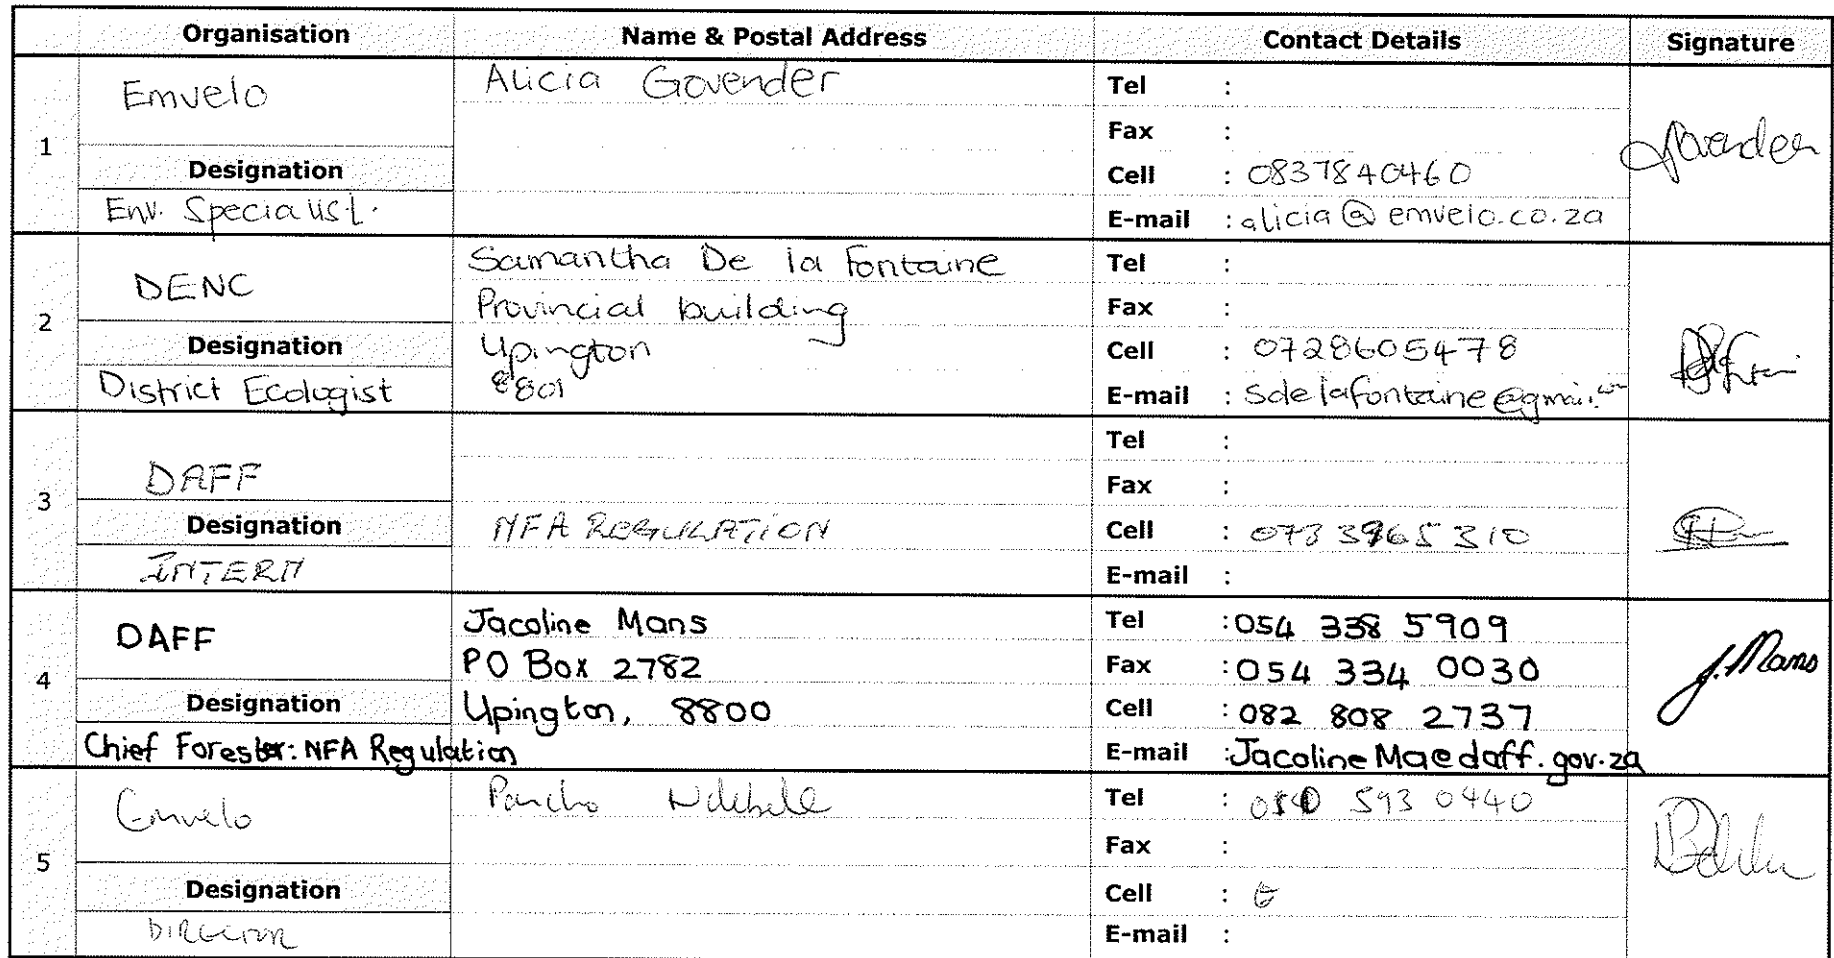 Organisation Name & Postal Address Contact Details Signature
1
Emvelo
Designation
Env. Specialist.
Alicia Govender
Tel :
Fax :
Cell : 0837840460
E-mail : alicia@emvelo.co.za
Govender
2
DENC
Designation
District Ecologist
Samantha De la Fontaine
Provincial building
Upington
8801
Tel :
Fax :
Cell : 0728605478
E-mail : Sdelafontaine@gmail.com
3
DAFF
Designation
INTERN
NFA REGULATION
Tel :
Fax :
Cell : 0733965310
E-mail :
4
DAFF
Designation
Chief Forester: NFA Regulation
Jacoline Mans
PO Box 2782
Upington, 8800
Tel : 054 338 5909
Fax : 054 334 0030
Cell : 082 808 2737
E-mail : JacolineMa@daff.gov.za
J. Mans
5
Emvelo
Designation
DIRECTOR
Ndebele
Tel : 593 0440
Fax :
Cell :
E-mail :